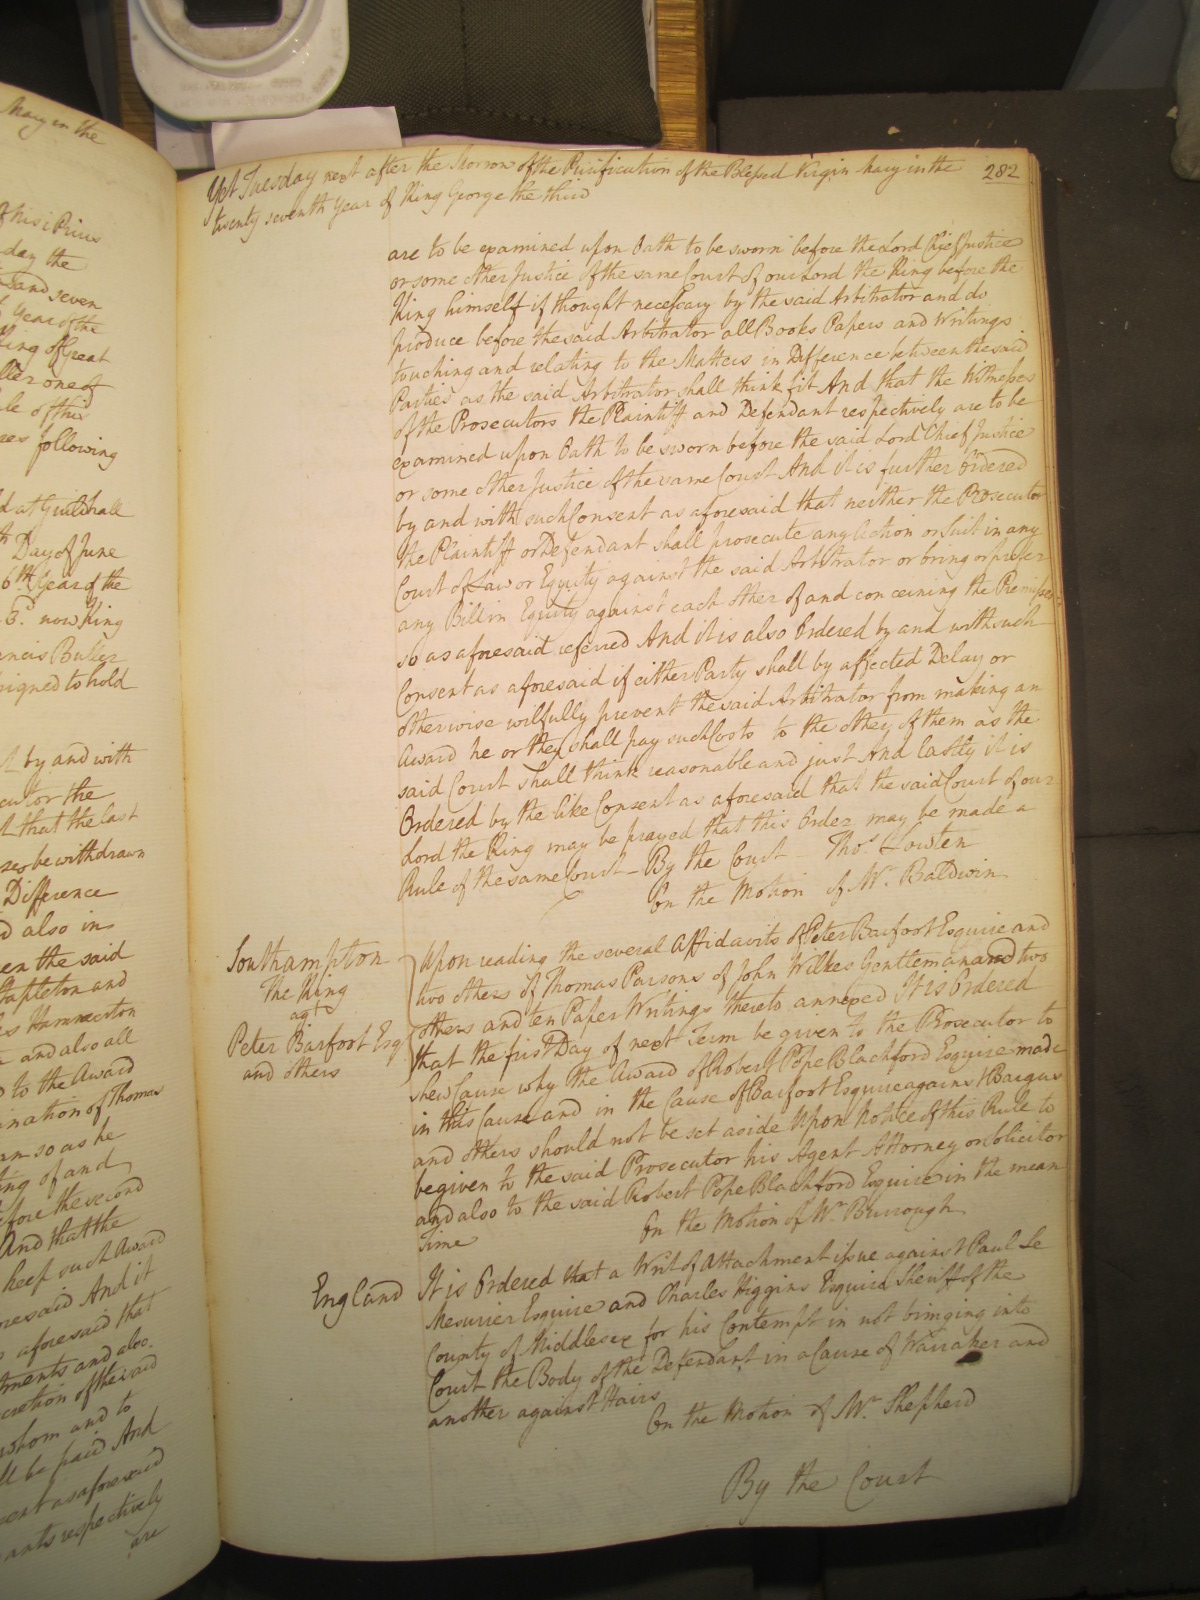 May in the
of his i Prius
day the
sand seven
Year of the
King of Great
ller one of
ule of this
ces following
d at Guildhall
th Day of June
6th Year of the
3d. now King
ancis Buller
signed to hold
t by and with
cutor the
t that the last
be withdrawn
Difference
d also in
en the said
Stapleton and
and also all
d to the Award
ination of Thomas
am so as he
ting of and
efore the second
And that the
keep such Award
oresaid And it
aforesaid that
tments and also
cretion of the said
whom and to
ll be paid And
sent as aforesaid
ants respectively
are
Yet Tuesday next after the Morrow of the Purification of the Blessed Virgin Mary in the 282
twenty seventh Year of King George the third
are to be examined upon Oath to be sworn before the Lord Chief Justice
or some other Justice of the same Court of our Lord the King before the
King himself if thought necessary by the said Arbitrator and do
produce before the said Arbitrator all Books Papers and Writings
touching and relating to the Matters in Difference between the said
Parties as the said Arbitrator shall think fit And that the Witnesses
of the Prosecutors the Plaintiff and Defendant respectively are to be
examined upon Oath to be sworn before the said Lord Chief Justice
or some other Justice of the same Court And it is further Ordered
by and with such Consent as aforesaid that neither the Prosecutor
the Plaintiff or Defendant shall prosecute any Action or Suit in any
Court of Law or Equity against the said Arbitrator or bring or prefer
any Bill in Equity against each other of and concerning the Premisses
so as aforesaid referred And it is also Ordered by and with such
Consent as aforesaid if either Party shall by affected Delay or
otherwise wilfully prevent the said Arbitrator from making an
Award he or they shall pay such Costs to the other of them as the
said Court shall think reasonable and just And lastly it is
Ordered by the like Consent as aforesaid that the said Court of our
Lord the King may be prayed that this Order may be made a
Rule of the same Court – By the Court – Thos. Lowten
On the Motion of Mr. Baldwin
Southampton
The King
agt
Peter Barfoot Esqr
and others
Upon reading the several Affidavits of Peter Barfoot Esquire and
two others of Thomas Parsons of John Wilkes Gentleman and two
others and ten Paper Writings thereto annexed It is Ordered
that the first Day of next Term be given to the Prosecutor to
shew Cause why the Award of Robert Pope Blachford Esquire made
in this Cause and in the Cause of Barfoot Esquire against Bargus
and others should not be set aside Upon Notice of this Rule to
be given to the said Prosecutor his Agent Attorney or Solicitor
and also to the said Robert Pope Blachford Esquire in the mean
Time
On the Motion of Mr. Burrough
England
It is Ordered that a Writ of Attachment issue against Paul Le
Mesurier Esquire and Charles Higgins Esquire Sheriff of the
County of Middlesex for his Contempt in not bringing into
Court the Body of the Defendant in a Cause of and
another against Hairs
On the Motion of Mr. Shepherd
By the Court